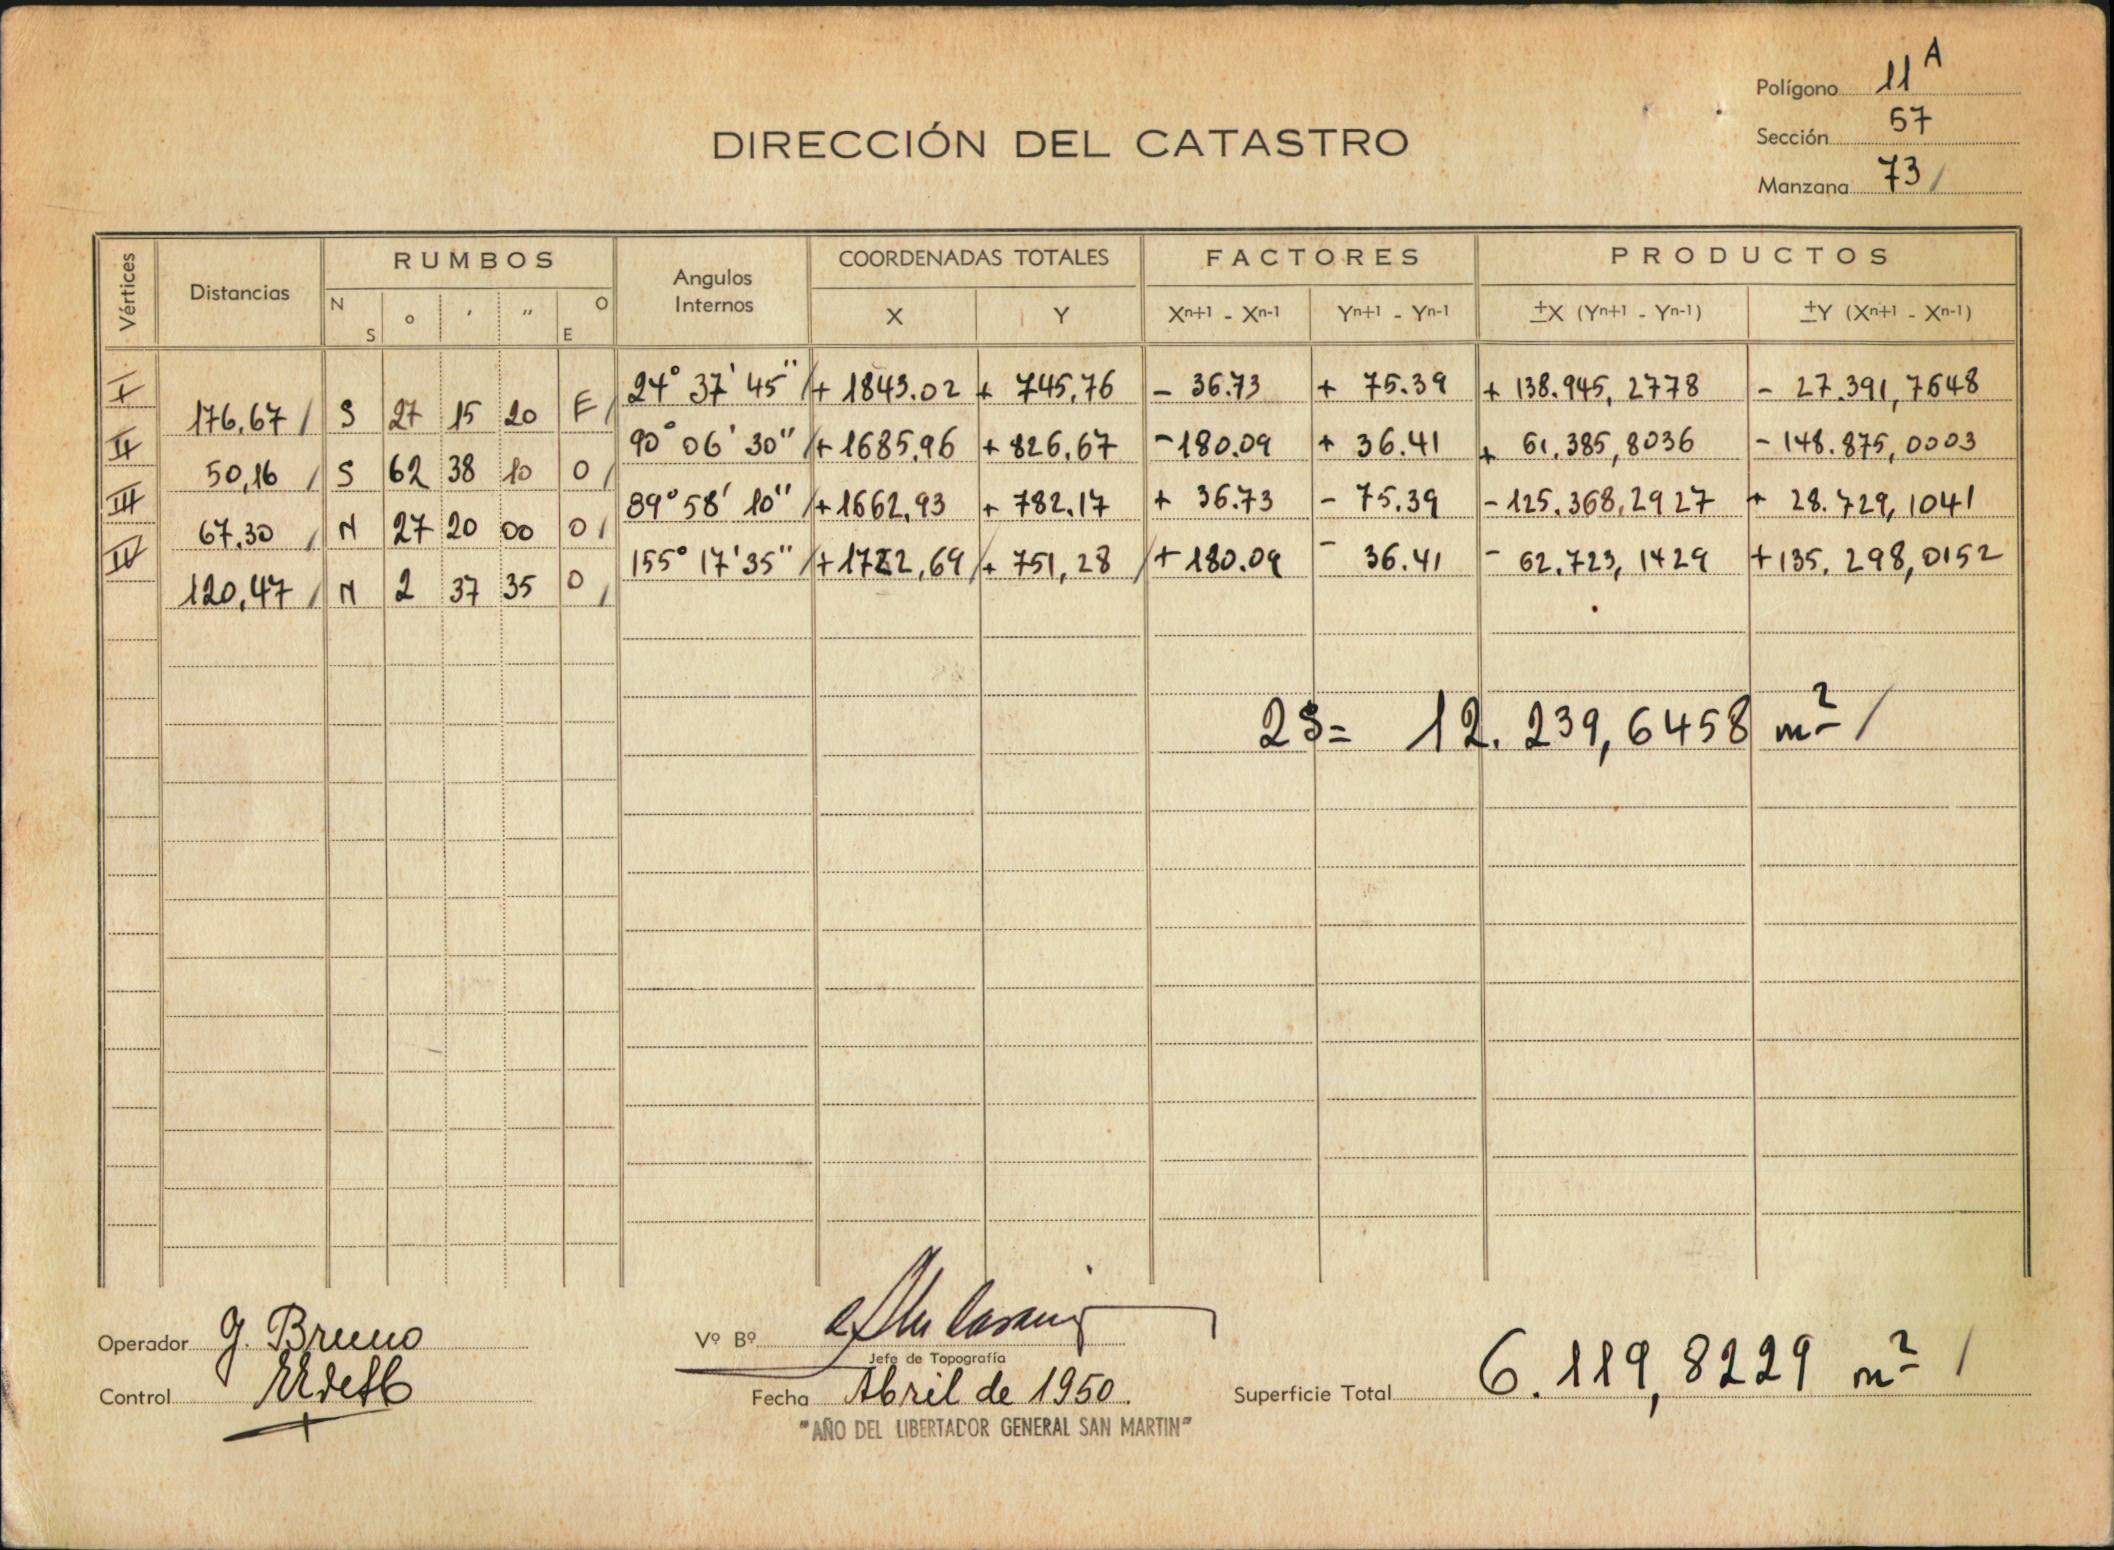 Polígono 11 A
Sección 67
Manzana 73 /
DIRECCIÓN DEL CATASTRO
Vértices Distancias RUMBOS Angulos Internos COORDENADAS TOTALES FACTORES PRODUCTOS
N S ° ' " O E X Y Xn+1 - Xn-1 Yn+1 - Yn-1 ±X (Yn+1 - Yn-1) ±Y (Xn+1 - Xn-1)
I 24° 37' 45" / + 1843.02 + 745,76 - 36.73 + 75.39 + 138.945,2778 - 27.391,7648
176,67 / S 27 15 20 E /
II 90° 06' 30" / + 1685,96 + 826,67 - 180.09 + 36.41 + 61.385,8036 - 148.875,0003
50,16 / S 62 38 10 O /
III 89° 58' 10" / + 1662,93 + 782.17 + 36.73 - 75.39 - 125.368,2927 + 28.729,1041
67,30 / N 27 20 00 O /
IV 155° 17' 35" / + 1722,69 / + 751,28 / + 180.09 - 36.41 - 62.723,1429 + 135.298,0152
120,47 / N 2 37 35 O /
2S = 12.239,6458 m² /
Operador G. Bruno
Control
Vº Bº
Jefe de Topografía
Fecha Abril de 1950.
"AÑO DEL LIBERTADOR GENERAL SAN MARTIN"
Superficie Total 6.119,8229 m² /